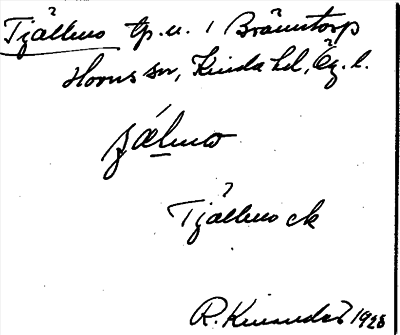 Tjällmo tp. u. 1 Bränntorp
Horns sn, Kinda hd, Ög. l.
Tjällmo ck
R. Kinander 1928